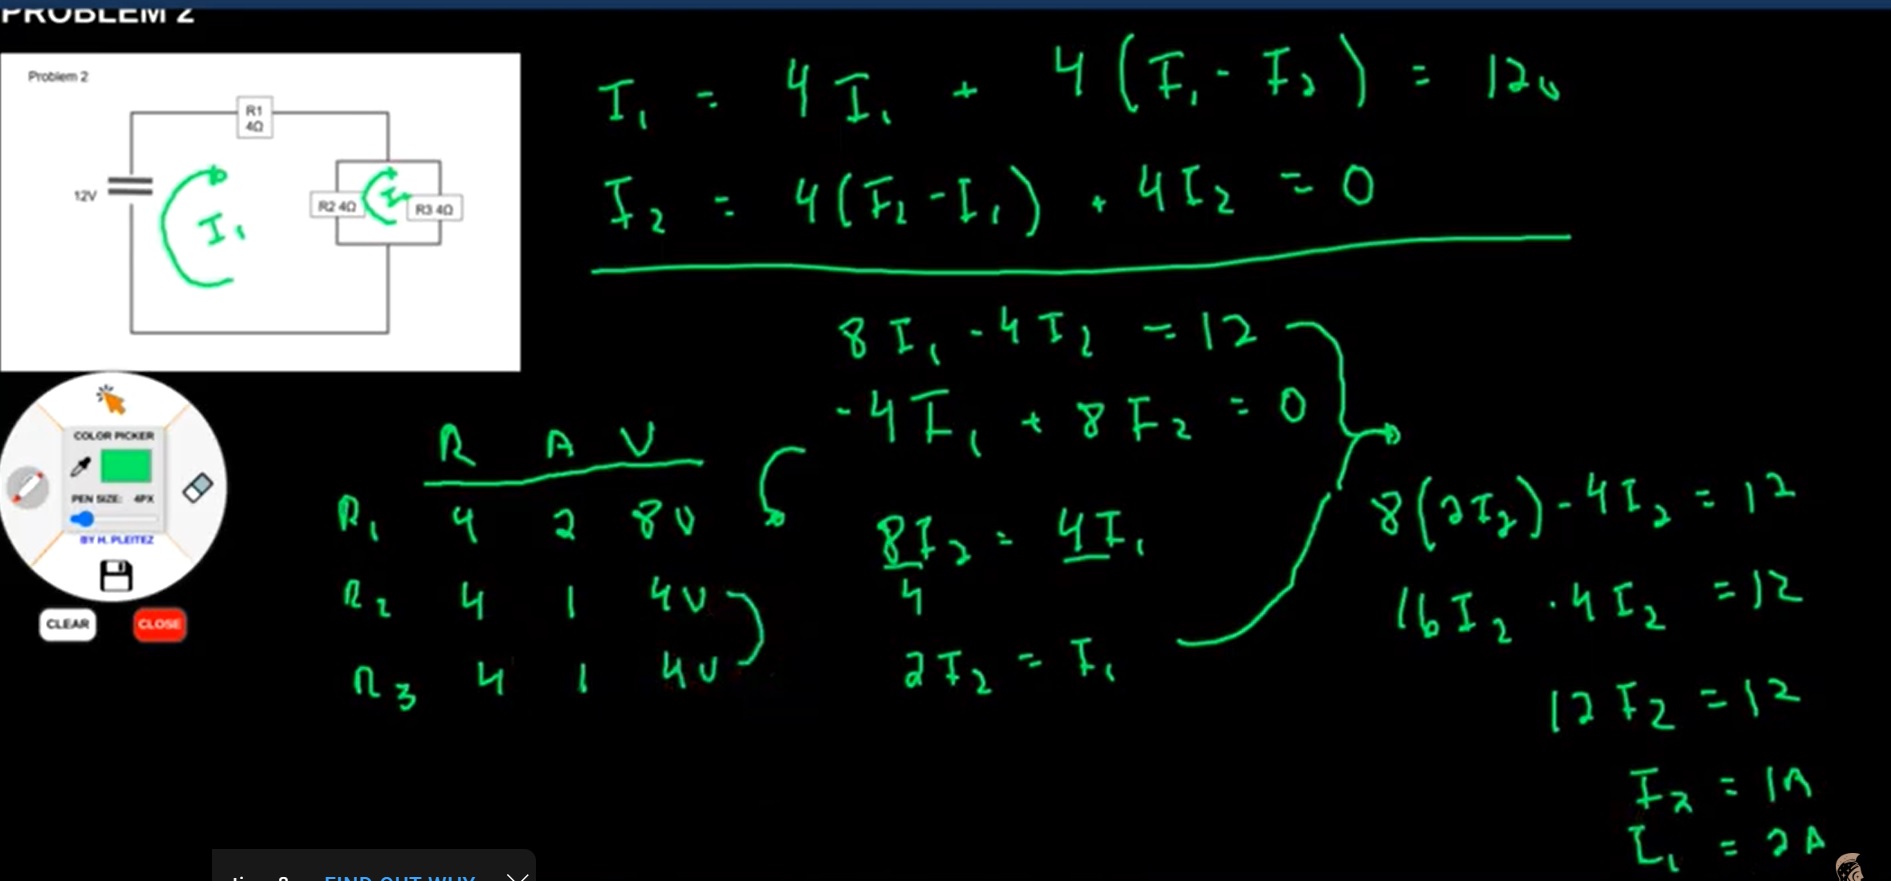 PROBLEM 2
Problem 2
R1
4Ω
12V
R2 4Ω
R3 4Ω
I₁
I₁ = 4I₁ + 4(I₁ - I₂) = 12v
I₂ = 4(I₂ - I₁) + 4I₂ = 0
8I₁ - 4I₂ = 12
-4I₁ + 8I₂ = 0
8I₂ = 4I₁
4
2I₂ = I₁
8(2I₂) - 4I₂ = 12
16I₂ - 4I₂ = 12
12I₂ = 12
I₂ = 1A
I₁ = 2A
R A V
R₁ 4 2 8V
R₂ 4 1 4V
R₃ 4 1 4V
COLOR PICKER
PEN SIZE: 4PX
BY H. PLEITEZ
CLEAR
CLOSE
FIND OUT WHY